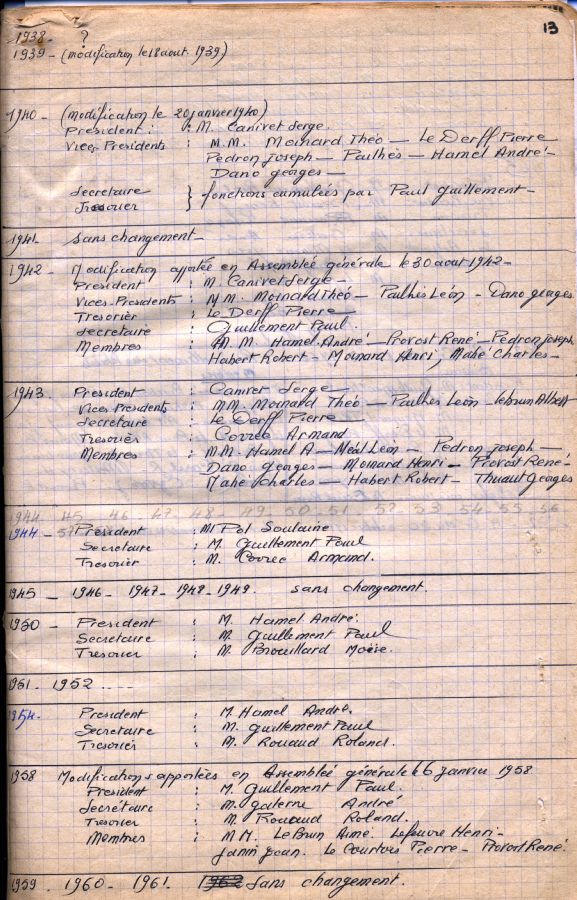 13
1938 - ?
1939 - (modification le 18 aout. 1939)
1940 - (Modification le 20 janvier 1940)
President : : M. Canivet Serge.
Vices Presidents : M.M. Moinard Théo - Le Derff Pierre
Pedron Joseph - Paulhès - Hamel André -
Dano georges -
Secretaire } fonctions cumulées par Paul Guillement -
Tresorier
1941 - Sans changement -
1942 - Modification apportée en Assemblée générale le 30 aout 1942 -
President : M. Canivet Serge -
Vices-Presidents : M.M. Moinard Théo - Paulhès Léon - Dano georges
Tresorier : Le Derff Pierre
Secretaire : Guillement Paul.
Membres : M.M. Hamel André - Provost René - Pedron Joseph
Habert Robert - Moinard Henri, Mahé Charles -
1943 - President : Canivet Serge -
Vices Presidents : M.M. Moinard Théo - Paulhès Léon - Lebrun Albert
Secretaire : Le Derff Pierre -
Tresorier : Correc Armand
Membres : M.M. Hamel A - Léon - Pedron Joseph -
Dano georges - Moinard Henri - Provost René -
Mahé Charles - Habert Robert - Thuaut Georges
1944 45 46 47 48 - 49 50 - 51 52 53 54 - 55 - 56
1944 - President : M Pol Soulaine
Secretaire : M. Guillement Paul
Tresorier : M. Correc Armand.
1945 - 1946 - 1947 - 1948 - 1949. sans changement.
1950 - President : M. Hamel André.
Secretaire : M. Guillement Paul
Tresorier : M. Brouillard Moïse.
1951 - 1952 ....
1954 - President : M. Hamel André.
Secretaire : M. Guillement Paul
Tresorier : M. Rouaud Roland.
1958 Modifications apportées en Assemblée générale le 6 Janvier 1958
President : M. Guillement Paul.
Secrétaire : M. Gaterre André
Tresorier : M. Rouaud Roland.
Membres : M M. Le Brun Aimé. Lefeuvre Henri -
Janin Jean. Le Courtois Pierre - Provost René.
1959 - 1960 - 1961. 1962 Sans changement.